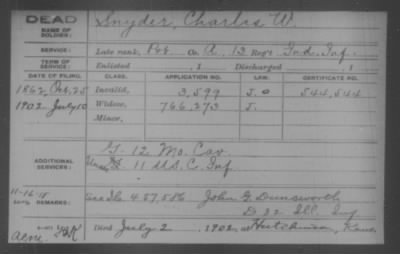 DEAD
NAME OF SOLDIER:
Snyder, Charles W.
SERVICE: Late rank, Pvt. Co. A, 13 Reg't Ind. Inf.
TERM OF SERVICE: Enlisted , 1 Discharged , 1
DATE OF FILING. CLASS. APPLICATION NO. LAW. CERTIFICATE NO.
1862, Oct. 25 Invalid, 3,599 J. O 544,544
1902 July 10 Widow, 766,273 J.
Minor,
ADDITIONAL SERVICES: G 12 Mo. Cav.
11 U.S.C. Inf
REMARKS: 457,586 John G. Dunsworth
D 32 Ill. Inf
Died July 2 1902, at Hutchinson, Kans.